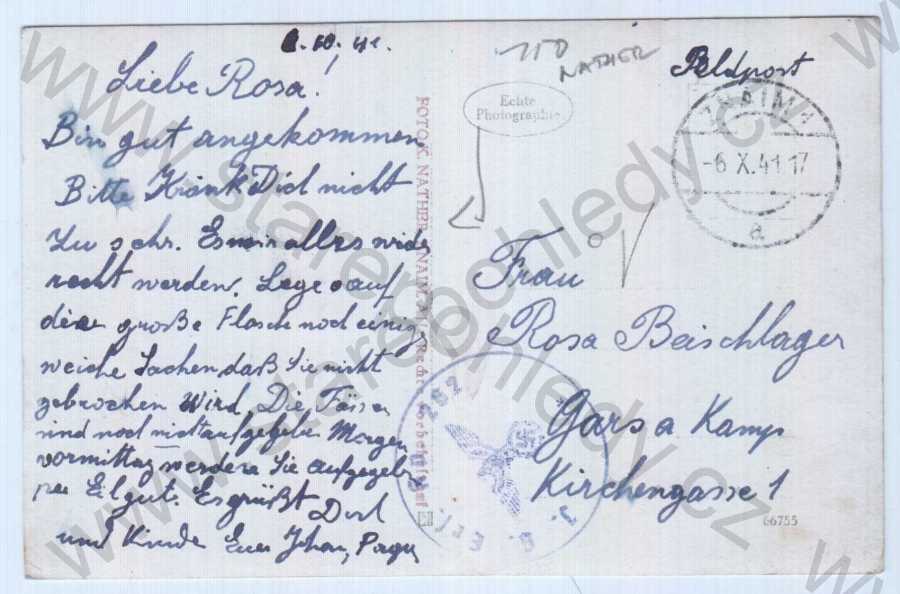 6.10.41.
Liebe Rosa!
Bin gut angekommen
Bitte Kränk Dich nicht
zu sehr. Es wird alles wieder
recht werden. Lege auf
die große Flasche noch einige
weiche Sachen daß Sie nicht
gebrochen wird. Die Fässer
sind noch nicht aufgegeben Morgen
vormittag werden Sie aufgegeben
per Eilgut. Es grüßt Dich
und Kinder Euer
FOTO K. NATHER, ZNAIM
110
NATHER
Echte
Photographie
Feldpost
ZNAIM 1
-6 X. 41 17
a
Frau
Rosa Beischlager
Gars a Kamp
Kirchengasse 1
66755
www.starepohledy.cz